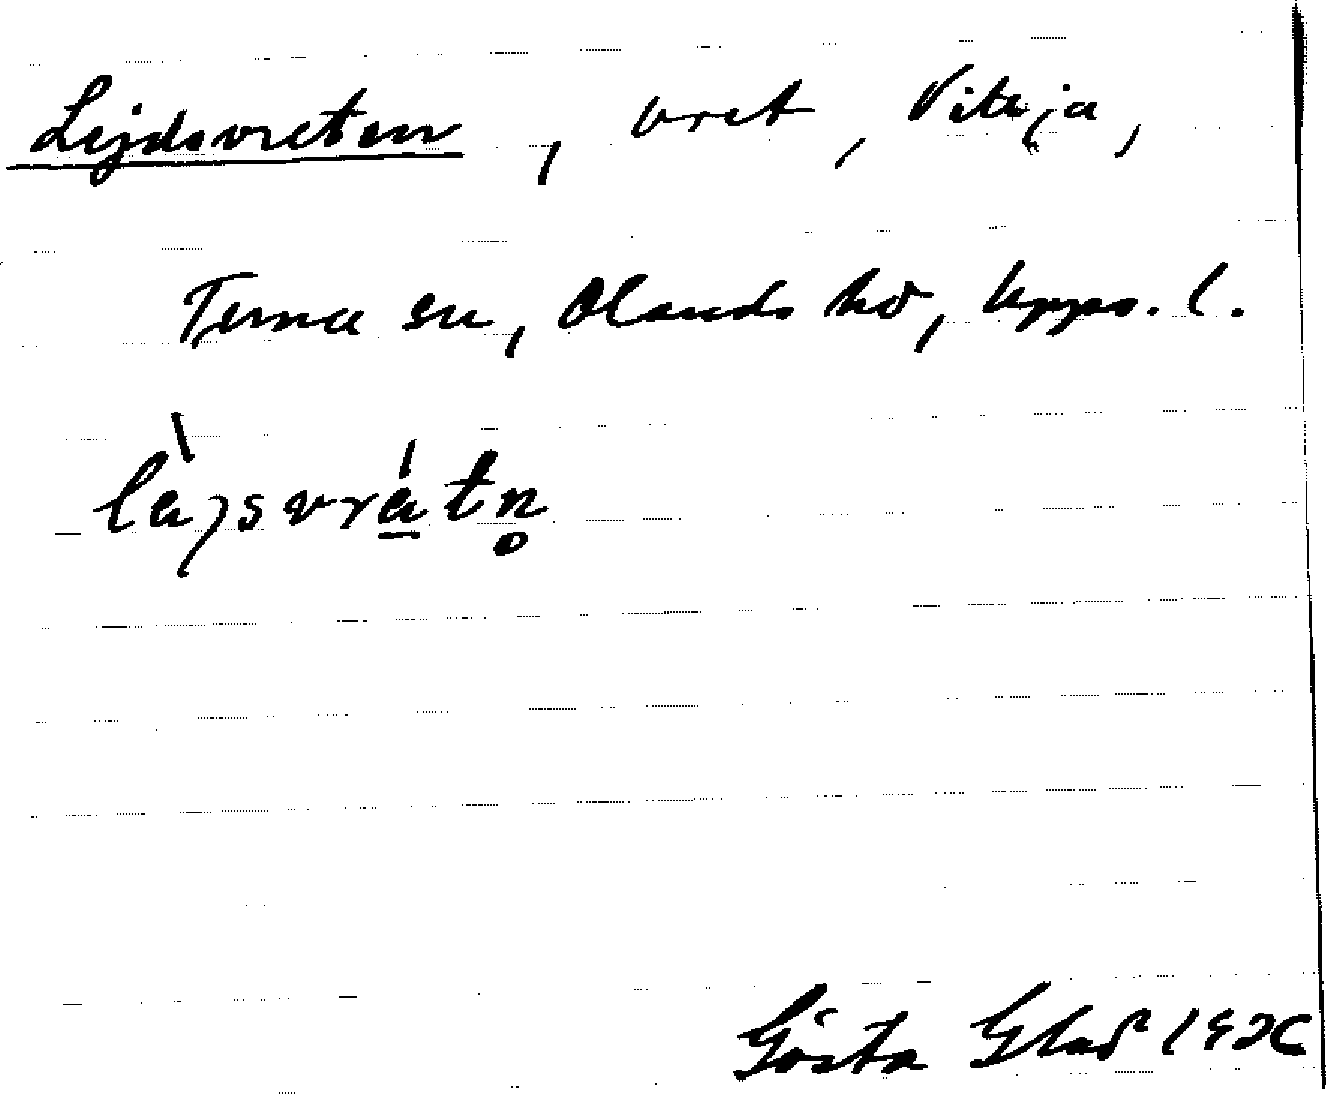 Lejdsvreten, vret, Viteja,
Tema sn, Olands hd, Upps. l.
làjsvrátn̥
Gösta Glad 1926